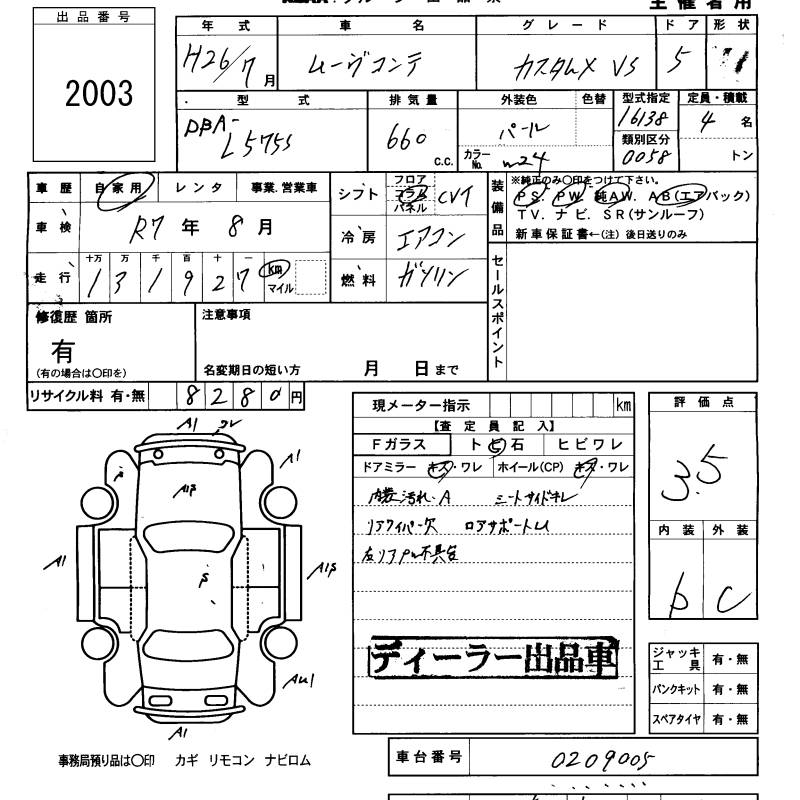 主催者用
出品番号
2003
年式 車名 グレード ドア 形状
H26/7月 ムーヴコンテ カスタムX VS 5
型式 排気量 外装色 色替 型式指定 定員・積載
DBA-L575S 660 c.c. パール 16138 4名
カラーNo. W24 類別区分 0058 トン
車歴 自家用 レンタ 事業.営業車
車検 R7年 8月
走行 十万 万 千 百 十 一 km マイル
1 3 1 9 2 7
シフト フロア コラム パネル CVT
冷房 エアコン
燃料 ガソリン
装備品 ※純正のみ〇印をつけて下さい。
PS. PW. 純AW. AB(エアバック)
TV. ナビ. SR(サンルーフ)
新車保証書←(注)後日送りのみ
セールスポイント
修復歴 箇所
有
(有の場合は〇印を)
注意事項
名変期日の短い方 月 日まで
リサイクル料 有・無 8280円
現メーター指示 km
【査定員記入】
Fガラス トビ石 ヒビワレ
ドアミラー キズ・ワレ ホイール(CP) キズ・ワレ
内装汚れ・A シートサイドキレ
リアワイパー欠 ロアサポートU
左リアPW不具合
ディーラー出品車
評価点
3.5
内装 外装
b C
ジャッキ工具 有・無
パンクキット 有・無
スペアタイヤ 有・無
A1
A1
A1β
A1
β
A1β
AU1
A1
事務局預り品は〇印 カギ リモコン ナビロム
車台番号 0209005